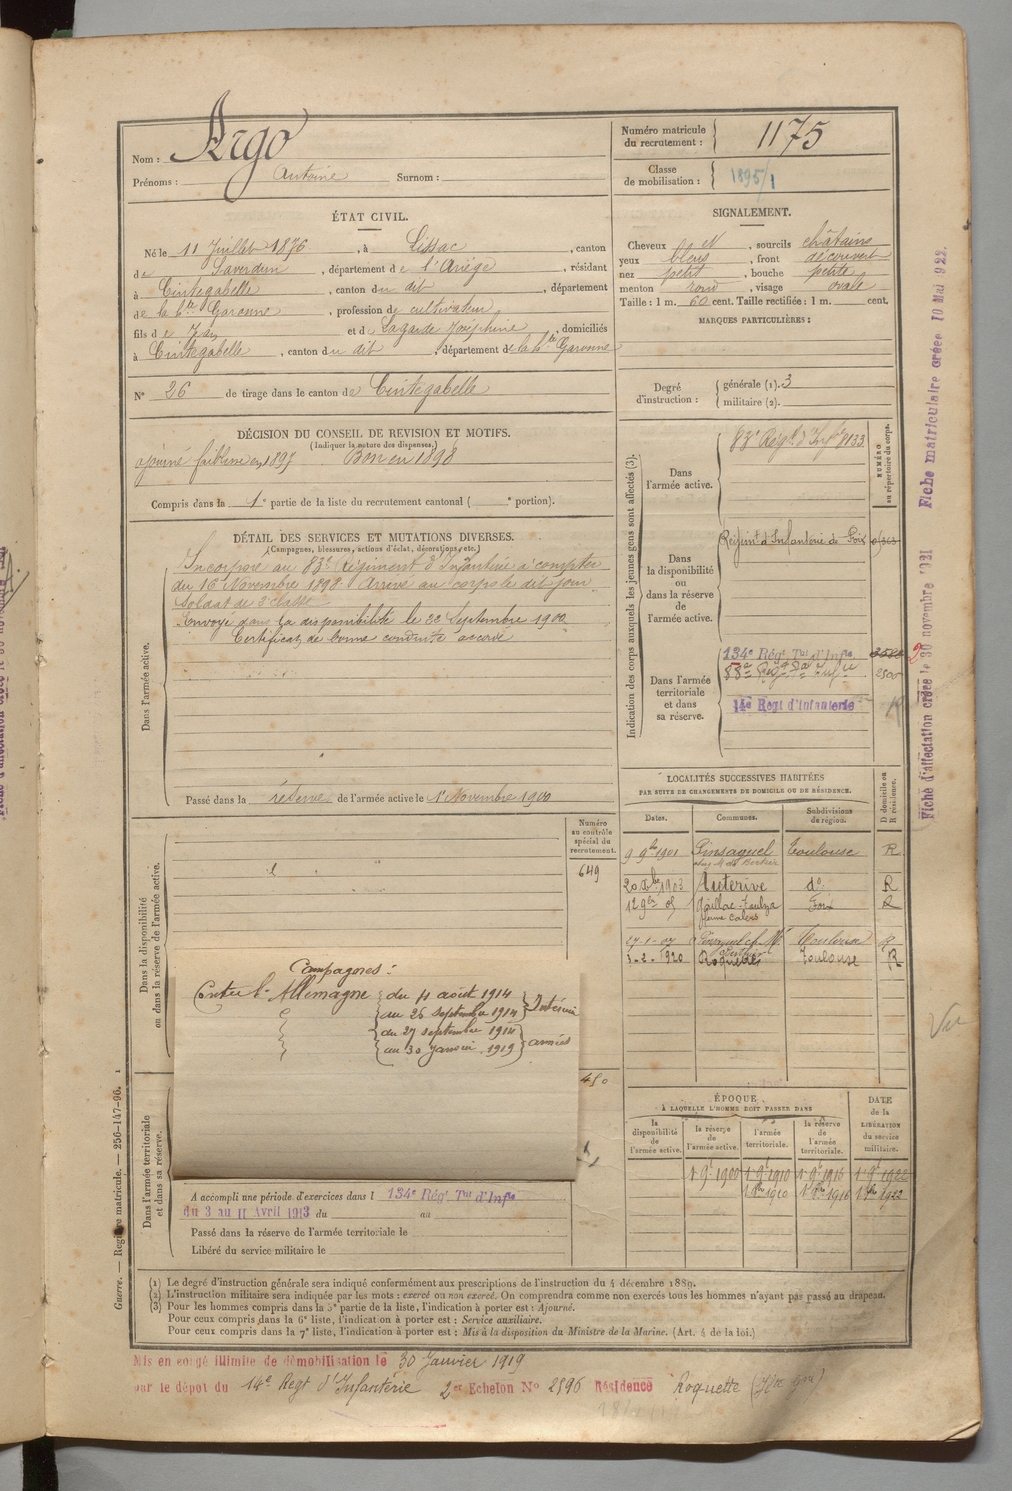 Nom : Argo
Prénoms : Antoine Surnom :
Numéro matricule
du recrutement : 1175
Classe
de mobilisation : 1895/1
ÉTAT CIVIL.
Né le 11 Juillet 1876 , à Lissac , canton
de Saverdun , département de l'Ariège , résidant
à Cintegabelle , canton du dit , département
de la hte Garonne , profession de cultivateur
fils de Jean et de Lagarde Joséphine , domiciliés
à Cintegabelle , canton du dit , département de la hte Garonne
N° 26 de tirage dans le canton de Cintegabelle
SIGNALEMENT.
Cheveux et , sourcils châtains
yeux bleus , front découvert
nez petit , bouche petite
menton rond , visage ovale
Taille : 1 m. 60 cent. Taille rectifiée : 1 m. cent.
MARQUES PARTICULIÈRES :
Degré
d'instruction :
générale (1). 3
militaire (2).
DÉCISION DU CONSEIL DE REVISION ET MOTIFS.
(Indiquer la nature des dispenses.)
ajourné faiblesse en 1897 Bon en 1898
Compris dans la 1e partie de la liste du recrutement cantonal ( e portion).
DÉTAIL DES SERVICES ET MUTATIONS DIVERSES.
(Campagnes, blessures, actions d'éclat, décorations, etc.)
Dans l'armée active.
Incorporé au 83e Régiment d'Infanterie à compter
du 16 Novembre 1898. Arrivé au corps le dit jour
Soldat de 2e classe
Envoyé dans la disponibilité le 22 Septembre 1900
Certificat de bonne conduite accordé
Passé dans la réserve de l'armée active le 1er Novembre 1900
Indication des corps auxquels les jeunes gens sont affectés (3).
NUMÉRO
au répertoire du corps.
Dans
l'armée active.
83e Régt d'Infie 1133
Dans
la disponibilité
ou
dans la réserve
de
l'armée active.
Régimt d'Infanterie de Foix
Dans l'armée
territoriale
et dans
sa réserve.
134e Régt Tal d'Infie
2500
14e Regt d'Infanterie
R
LOCALITÉS SUCCESSIVES HABITÉES
PAR SUITE DE CHANGEMENTS DE DOMICILE OU DE RÉSIDENCE.
Dates. Communes. Subdivisions
de région.
D domicile ou
R résidence.
9 9bre 1901 Pinsaguel Toulouse R
20 Xbre 1903 Auterive do R
12 9bre 05 Gaillac-Toulza Foix R
27-1-07 Toulouse R
1-2-1920 Roquettes Toulouse R
Dans la disponibilité
ou dans la réserve de l'armée active.
Numéro
au contrôle
spécial du
recrutement.
649
Campagnes :
Contre l'Allemagne
du 11 août 1914
au 26 septembre 1914 } Intérieur
du 27 septembre 1914
au 30 janvier 1919 } armées
450
ÉPOQUE
À LAQUELLE L'HOMME DOIT PASSER DANS
la
disponibilité
de
l'armée active.
la réserve
de
l'armée active.
l'armée
territoriale.
la réserve
de
l'armée
territoriale.
DATE
de la
LIBÉRATION
du service
militaire.
1er 9bre 1900 1er 9bre 1910 1er 9bre 1916 1er 9bre 1922
1er Xbre 1910 1er Xbre 1916 1er Xbre 1922
Dans l'armée territoriale
et dans sa réserve.
A accompli une période d'exercices dans l 134e Régt Tal d'Infie
du 3 au 11 Avril 1913 du au
Passé dans la réserve de l'armée territoriale le
Libéré du service militaire le
(1) Le degré d'instruction générale sera indiqué conformément aux prescriptions de l'instruction du 4 décembre 1889.
(2) L'instruction militaire sera indiquée par les mots : exercé ou non exercé. On comprendra comme non exercés tous les hommes n'ayant pas passé au drapeau.
(3) Pour les hommes compris dans la 5e partie de la liste, l'indication à porter est : Ajourné.
Pour ceux compris dans la 6e liste, l'indication à porter est : Service auxiliaire.
Pour ceux compris dans la 7e liste, l'indication à porter est : Mis à la disposition du Ministre de la Marine. (Art. 4 de la loi.)
Mis en congé illimité de démobilisation le 30 Janvier 1919
par le dépôt du 14e Regt d'Infanterie 2er Echelon N° 2596 Résidence Roquette (Hte Gne)
Guerre. — Registre matricule. — 256-147-96. 1
Fiche d'affectation créée le 30 novembre 1921 Fiche matriculaire créée 10 Mai 1922.
Vu